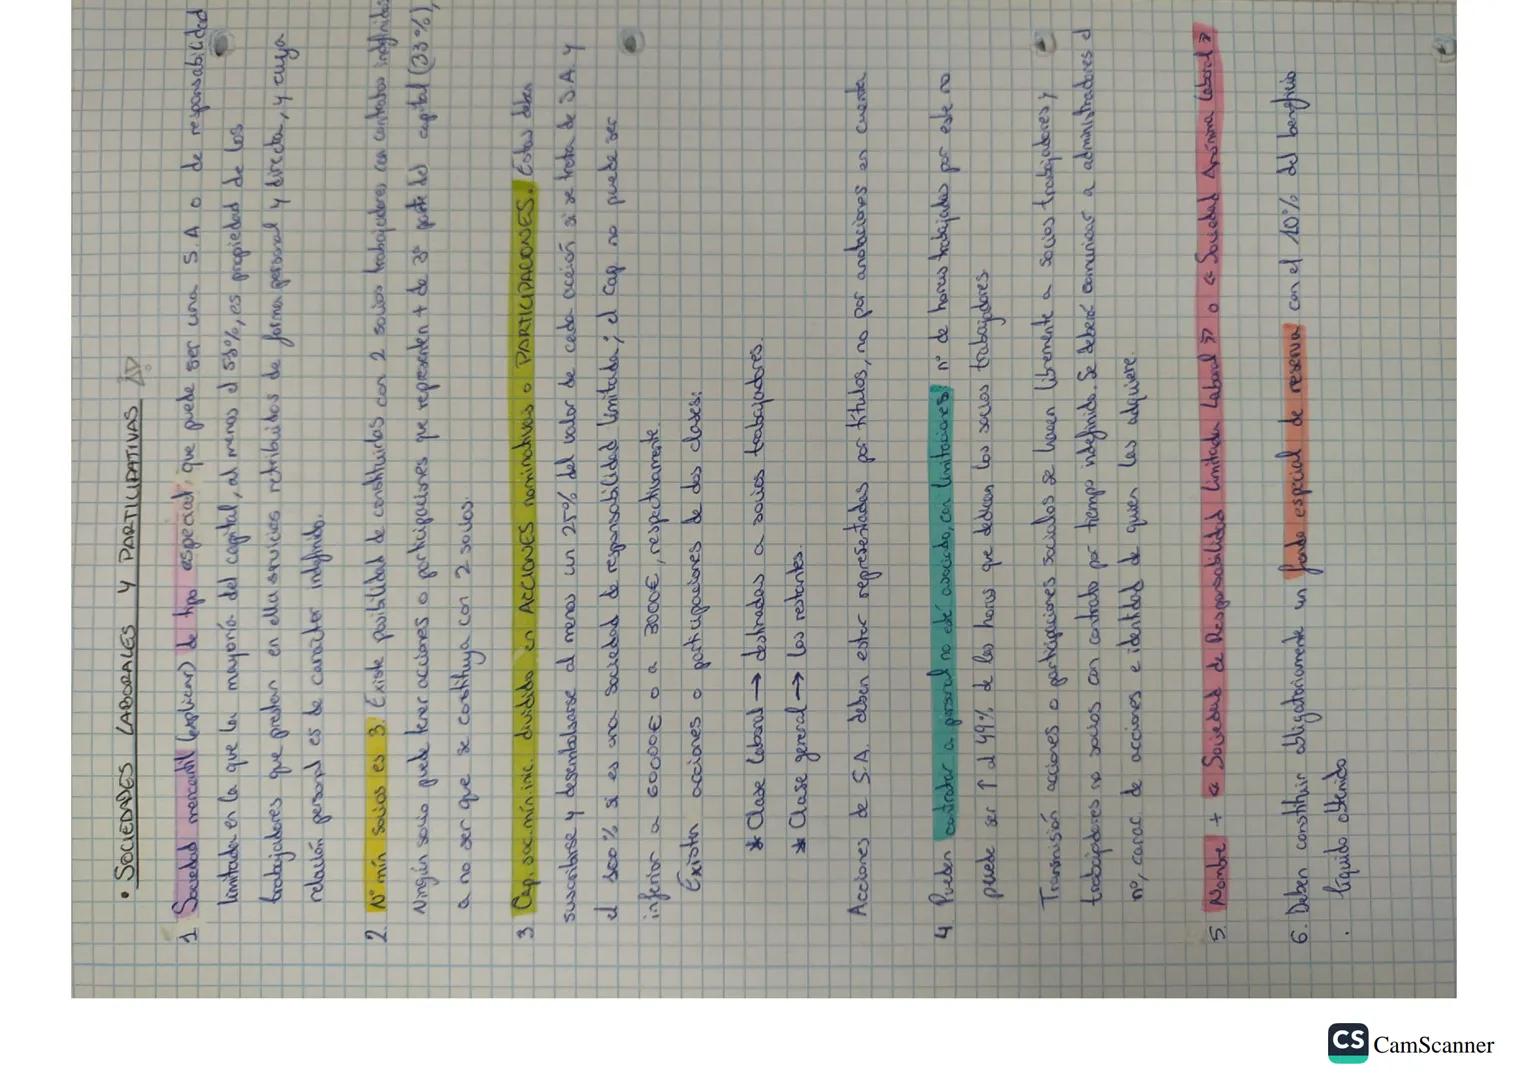 • SOCIEDADES LABORALES Y PARTICIPATIVAS
1. Sociedad mercantil (explicar) de tipo especial, que puede ser una S.A o de responsabilidad
limitada en la que la mayoría del capital, al menos el 51%, es propiedad de los
trabajadores que prestan en ella servicios retribuidos de forma personal y directa, y cuya
relación personal es de carácter indefinido.
2. Nº mín socios es 3. Existe posibilidad de constituirlas con 2 socios trabajadores con contratos indefinidos
Ningún socio puede tener acciones o participaciones que representen + de 3ª parte del capital (33%),
a no ser que se constituya con 2 socios.
3. Cap. soc. mín. inic. dividido en ACCIONES nominativas o PARTICIPACIONES. Estas deben
suscribirse y desembolsarse al menos un 25% del valor de cada acción si se trata de S.A. y
el 100% si es una sociedad de responsabilidad limitada; el Cap no puede ser
inferior a 60000€ o a 3000€, respectivamente.
Existen acciones o participaciones de dos clases:
* Clase laboral → destinadas a socios trabajadores.
* Clase general → los restantes.
Acciones de S.A. deben estar representadas por títulos, no por anotaciones en cuenta
4. Pueden contratar a personal no esté asociado, con limitaciones: nº de horas trabajadas por este no
puede ser ↑ al 49% de las horas que dedican los socios trabajadores.
Transmisión acciones o participaciones sociales se hacen libremente a socios trabajadores y
trabajadores no socios con contrato por tiempo indefinido. Se deberá comunicar a administradores el
nº, carac de acciones e identidad de quien las adquiere.
5. Nombre + « Sociedad de Responsabilidad Limitada Laboral » o « Sociedad Anónima Laboral »
6. Deben constituir obligatoriamente un fondo especial de reserva con el 10% del beneficio
líquido obtenido
CS CamScanner